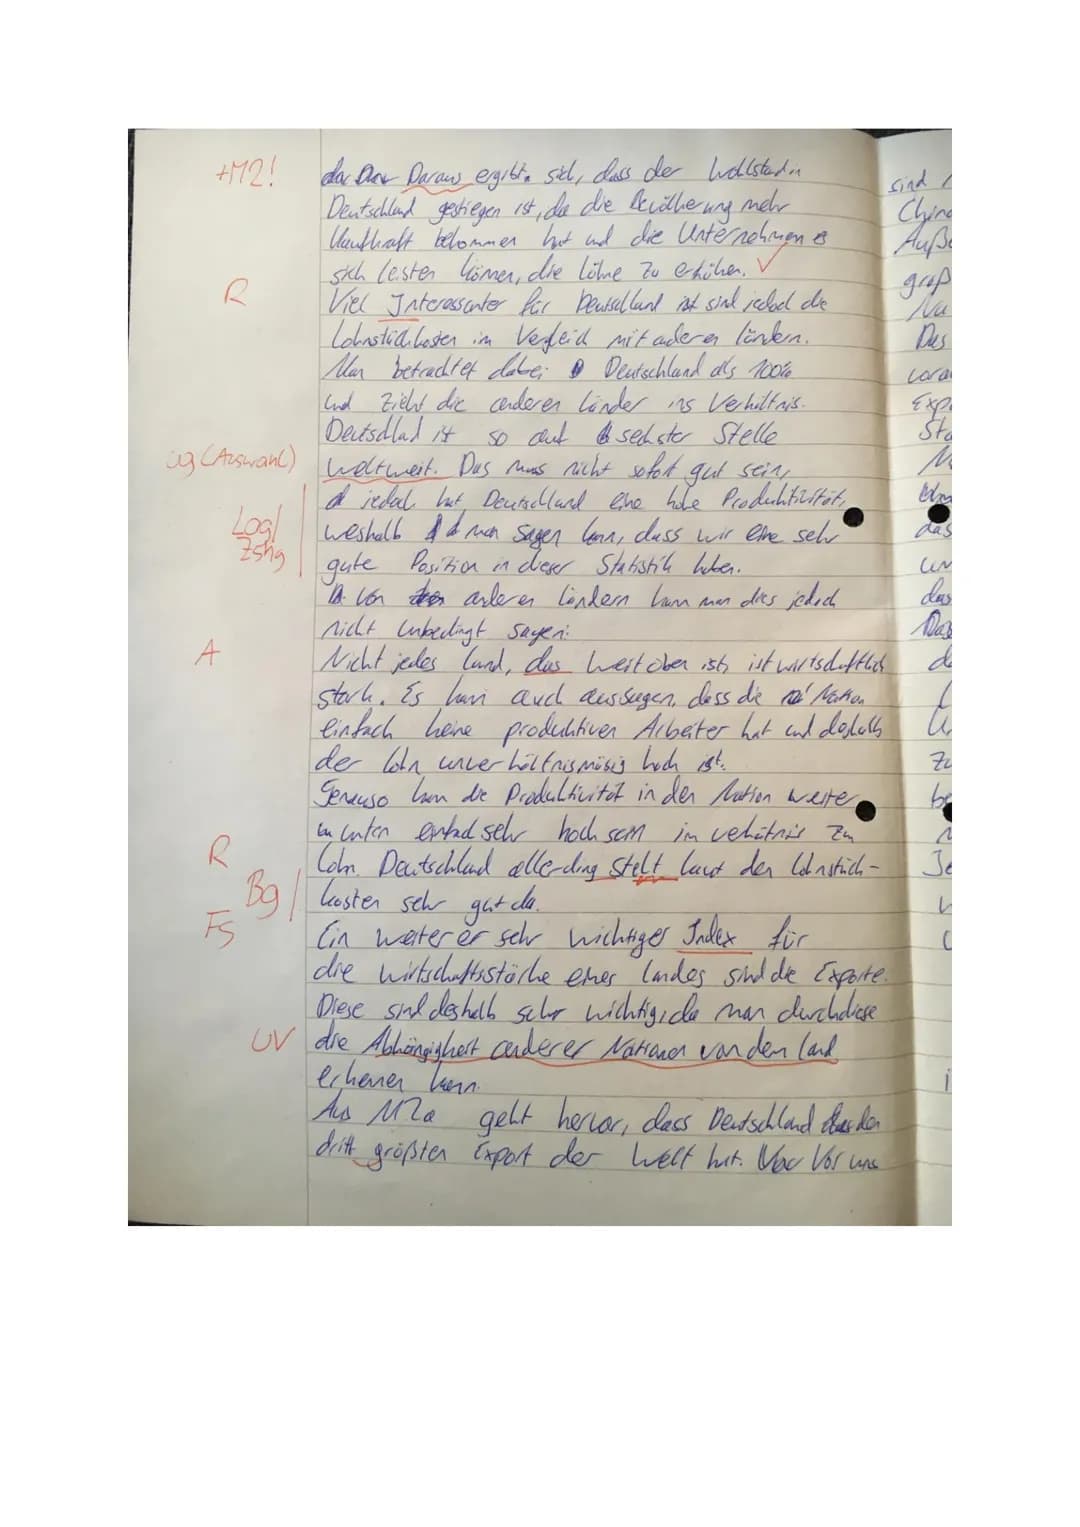 +M2!
Daraus ergibt sich, dass der Wohlstand in
Deutschland gestiegen ist, da die Bevölkerung mehr
Kaufkraft bekommen hat und die Unternehmen es
sich leisten können, die Löhne zu erhöhen. ✓
R
Viel Interessanter für Deutschland ist sind jedoch die
Lohnstückkosten im Vergleich mit anderen Ländern.
Man betrachtet dabei Deutschland als 100%
und zieht die anderen Länder ins Verhältnis.
Deutschland ist so auf sechster Stelle
ug (Auswahl)
weltweit. Das muss nicht sofort gut sein,
jedoch hat Deutschland eine hohe Produktivität,
Log/
Zshg
weshalb man sagen kann, dass wir eine sehr
gute Position in dieser Statistik haben.
Von anderen Ländern kann man dies jedoch
nicht unbedingt sagen:
A
Nicht jedes Land, das weit oben ist, ist wirtschaftlich
stark. Es kann auch aussagen, dass die Nation
einfach keine produktiven Arbeiter hat und deshalb
der Lohn unverhältnismäsig hoch ist.
Genauso kann die Produktivität in den Nation weiter
unten einfach sehr hoch sein im verhätnis zu
R
Lohn. Deutschland allerding stelt laut den Lohnstück-
Bg
kosten sehr gut da.
FS
Ein weiterer sehr wichtiger Index für
die Wirtschaftsstärke eines Landes sind die Exporte.
Diese sind deshalb sehr wichtig, da man durch diese
UV
die Abhängigkeit anderer Nationen von dem Land
erkennen kann.
Aus M2a geht hervor, dass Deutschland den
dritt größten Export der Welt hat. Vor uns
sind
China
Auß
groß
Na
Das
vora
Exp
Sta
das
um
das
Das